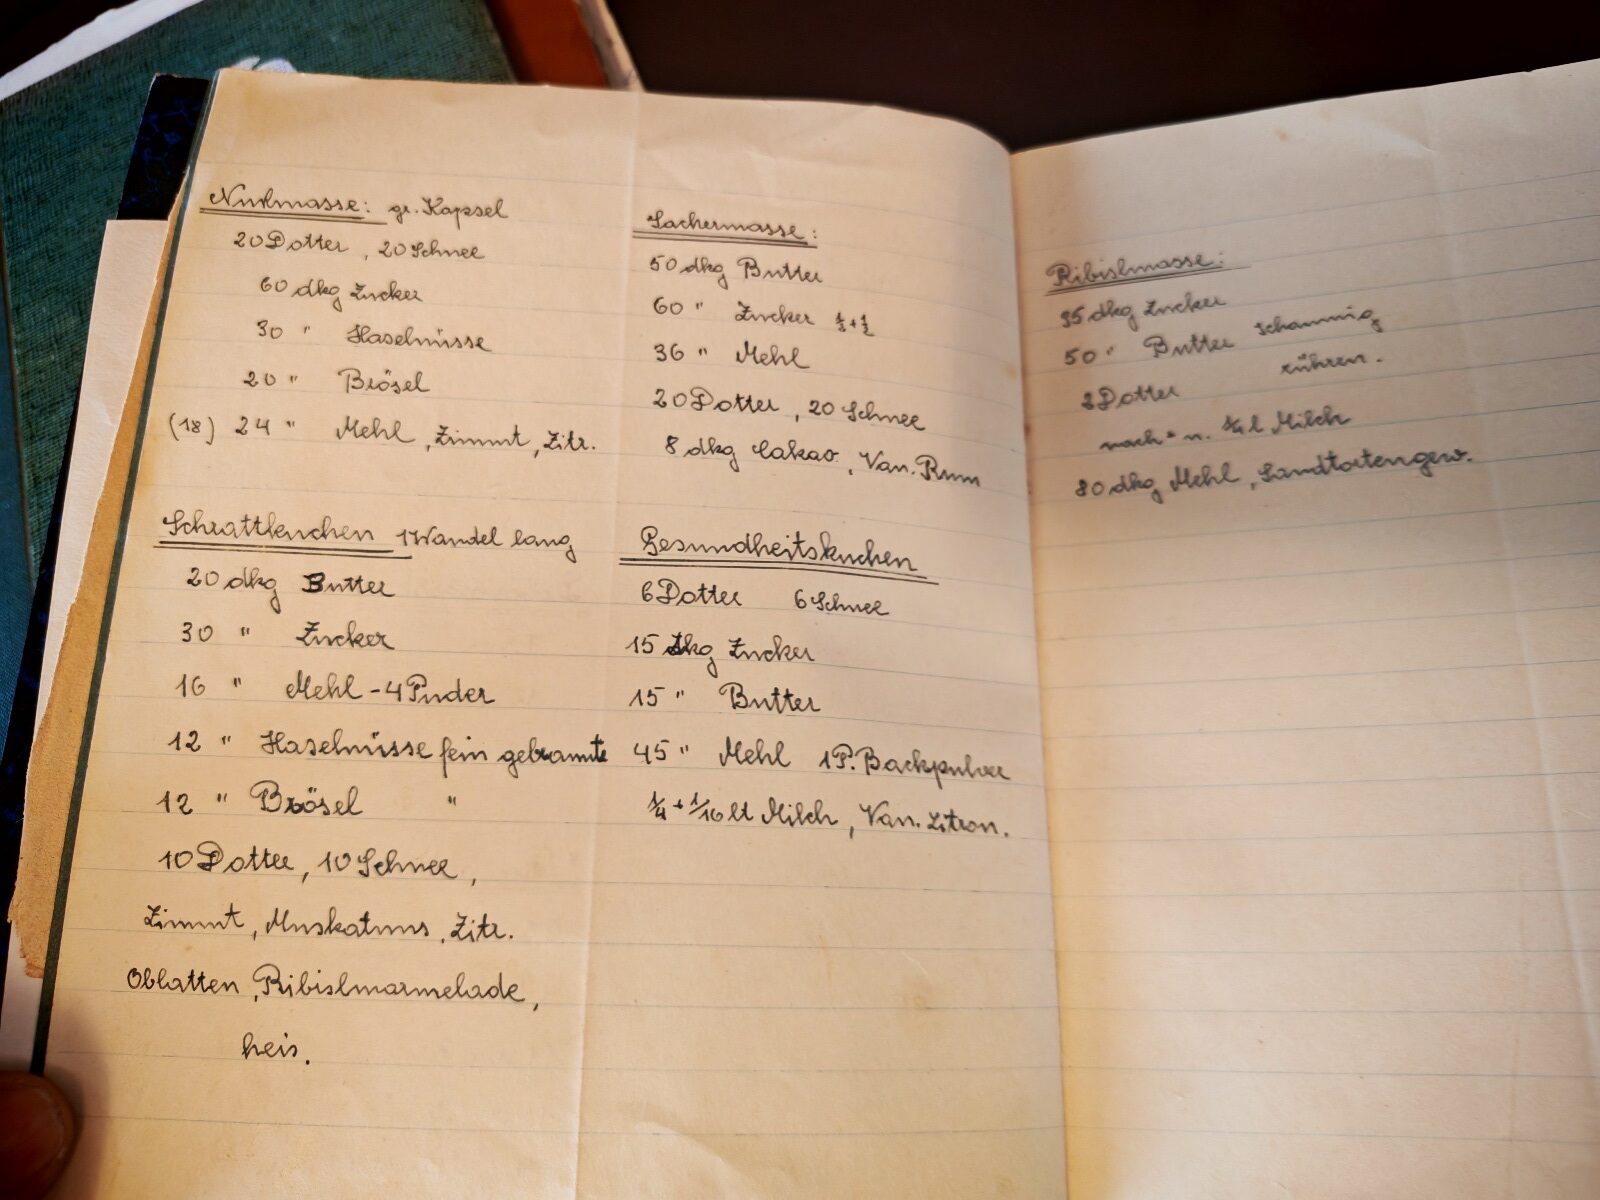 Nußmasse: gr. Kapsel
20 Dotter, 20 Schnee
60 dkg Zucker
30 " Haselnüsse
20 " Brösel
(18) 24 " Mehl, Zimmt, Zitr.
Schrattkuchen 1 Wandel lang
20 dkg Butter
30 " Zucker
16 " Mehl - 4 Puder
12 " Haselnüsse fein gebrannte
12 " Brösel "
10 Dotter, 10 Schnee,
Zimmt, Muskatnus, Zitr.
Oblatten, Ribislmarmelade,
heis.
Sachermasse:
50 dkg Butter
60 " Zucker ½+½
36 " Mehl
20 Dotter, 20 Schnee
8 dkg Cakao, Van. Rum
Gesundheitskuchen
6 Dotter 6 Schnee
15 dkg Zucker
15 " Butter
45 " Mehl 1 P. Backpulver
1/4 + 1/16 lt Milch, Van. Zitron.
Ribislmasse:
35 dkg Zucker
50 " Butter schaumig
rühren.
2 Dotter
nach = n. 1/4 l Milch
80 dkg Mehl, Sandtortengew.